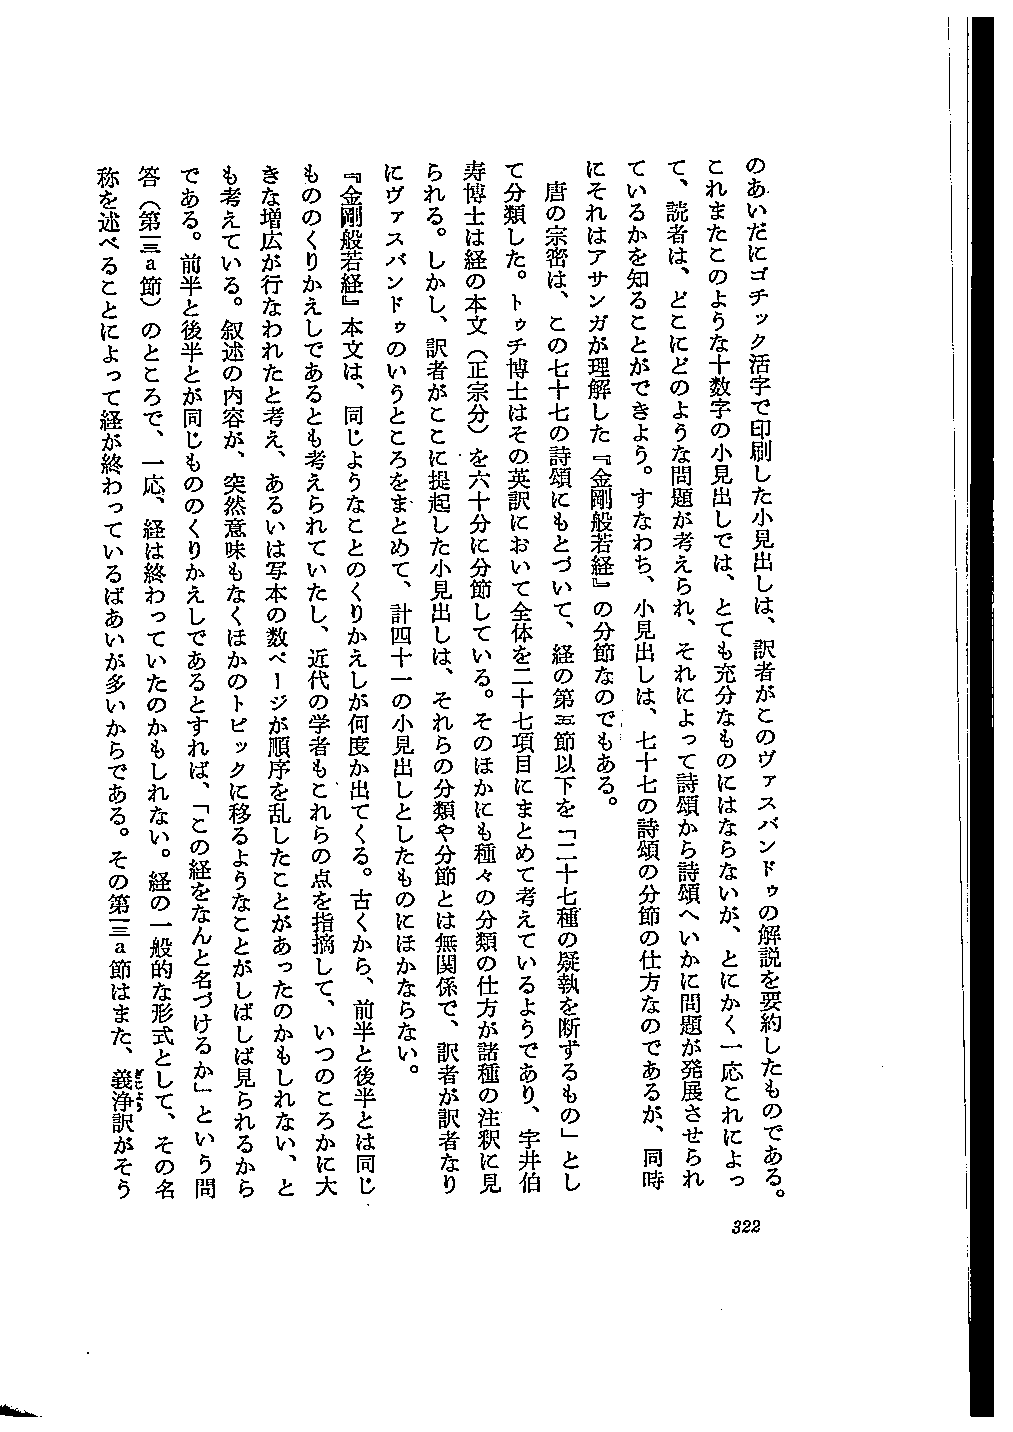 のあいだにゴチック活字で印刷した小見出しは、訳者がこのヴァスバンドゥの解説を要約したものである。
これまたこのような十数字の小見出しでは、とても充分なものにはならないが、とにかく一応これによっ
て、読者は、どこにどのような問題が考えられ、それによって詩頌から詩頌へいかに問題が発展させられ
ているかを知ることができよう。すなわち、小見出しは、七十七の詩頌の分節の仕方なのであるが、同時
にそれはアサンガが理解した『金剛般若経』の分節なのでもある。
唐の宗密は、この七十七の詩頌にもとづいて、経の第五節以下を「二十七種の疑執を断ずるもの」とし
て分類した。トゥチ博士はその英訳において全体を二十七項目にまとめて考えているようであり、宇井伯
寿博士は経の本文（正宗分）を六十分に分節している。そのほかにも種々の分類の仕方が諸種の注釈に見
られる。しかし、訳者がここに提起した小見出しは、それらの分類や分節とは無関係で、訳者が訳者なり
にヴァスバンドゥのいうところをまとめて、計四十一の小見出しとしたものにほかならない。
『金剛般若経』本文は、同じようなことのくりかえしが何度か出てくる。古くから、前半と後半とは同じ
もののくりかえしであるとも考えられていたし、近代の学者もこれらの点を指摘して、いつのころかに大
きな増広が行なわれたと考え、あるいは写本の数ページが順序を乱したことがあったのかもしれない、と
も考えている。叙述の内容が、突然意味もなくほかのトピックに移るようなことがしばしば見られるから
である。前半と後半とが同じもののくりかえしであるとすれば、「この経をなんと名づけるか」という問
答（第一三a節）のところで、一応、経は終わっていたのかもしれない。経の一般的な形式として、その名
称を述べることによって経が終わっているばあいが多いからである。その第一三a節はまた、義浄訳がそう
ぎじょう
322